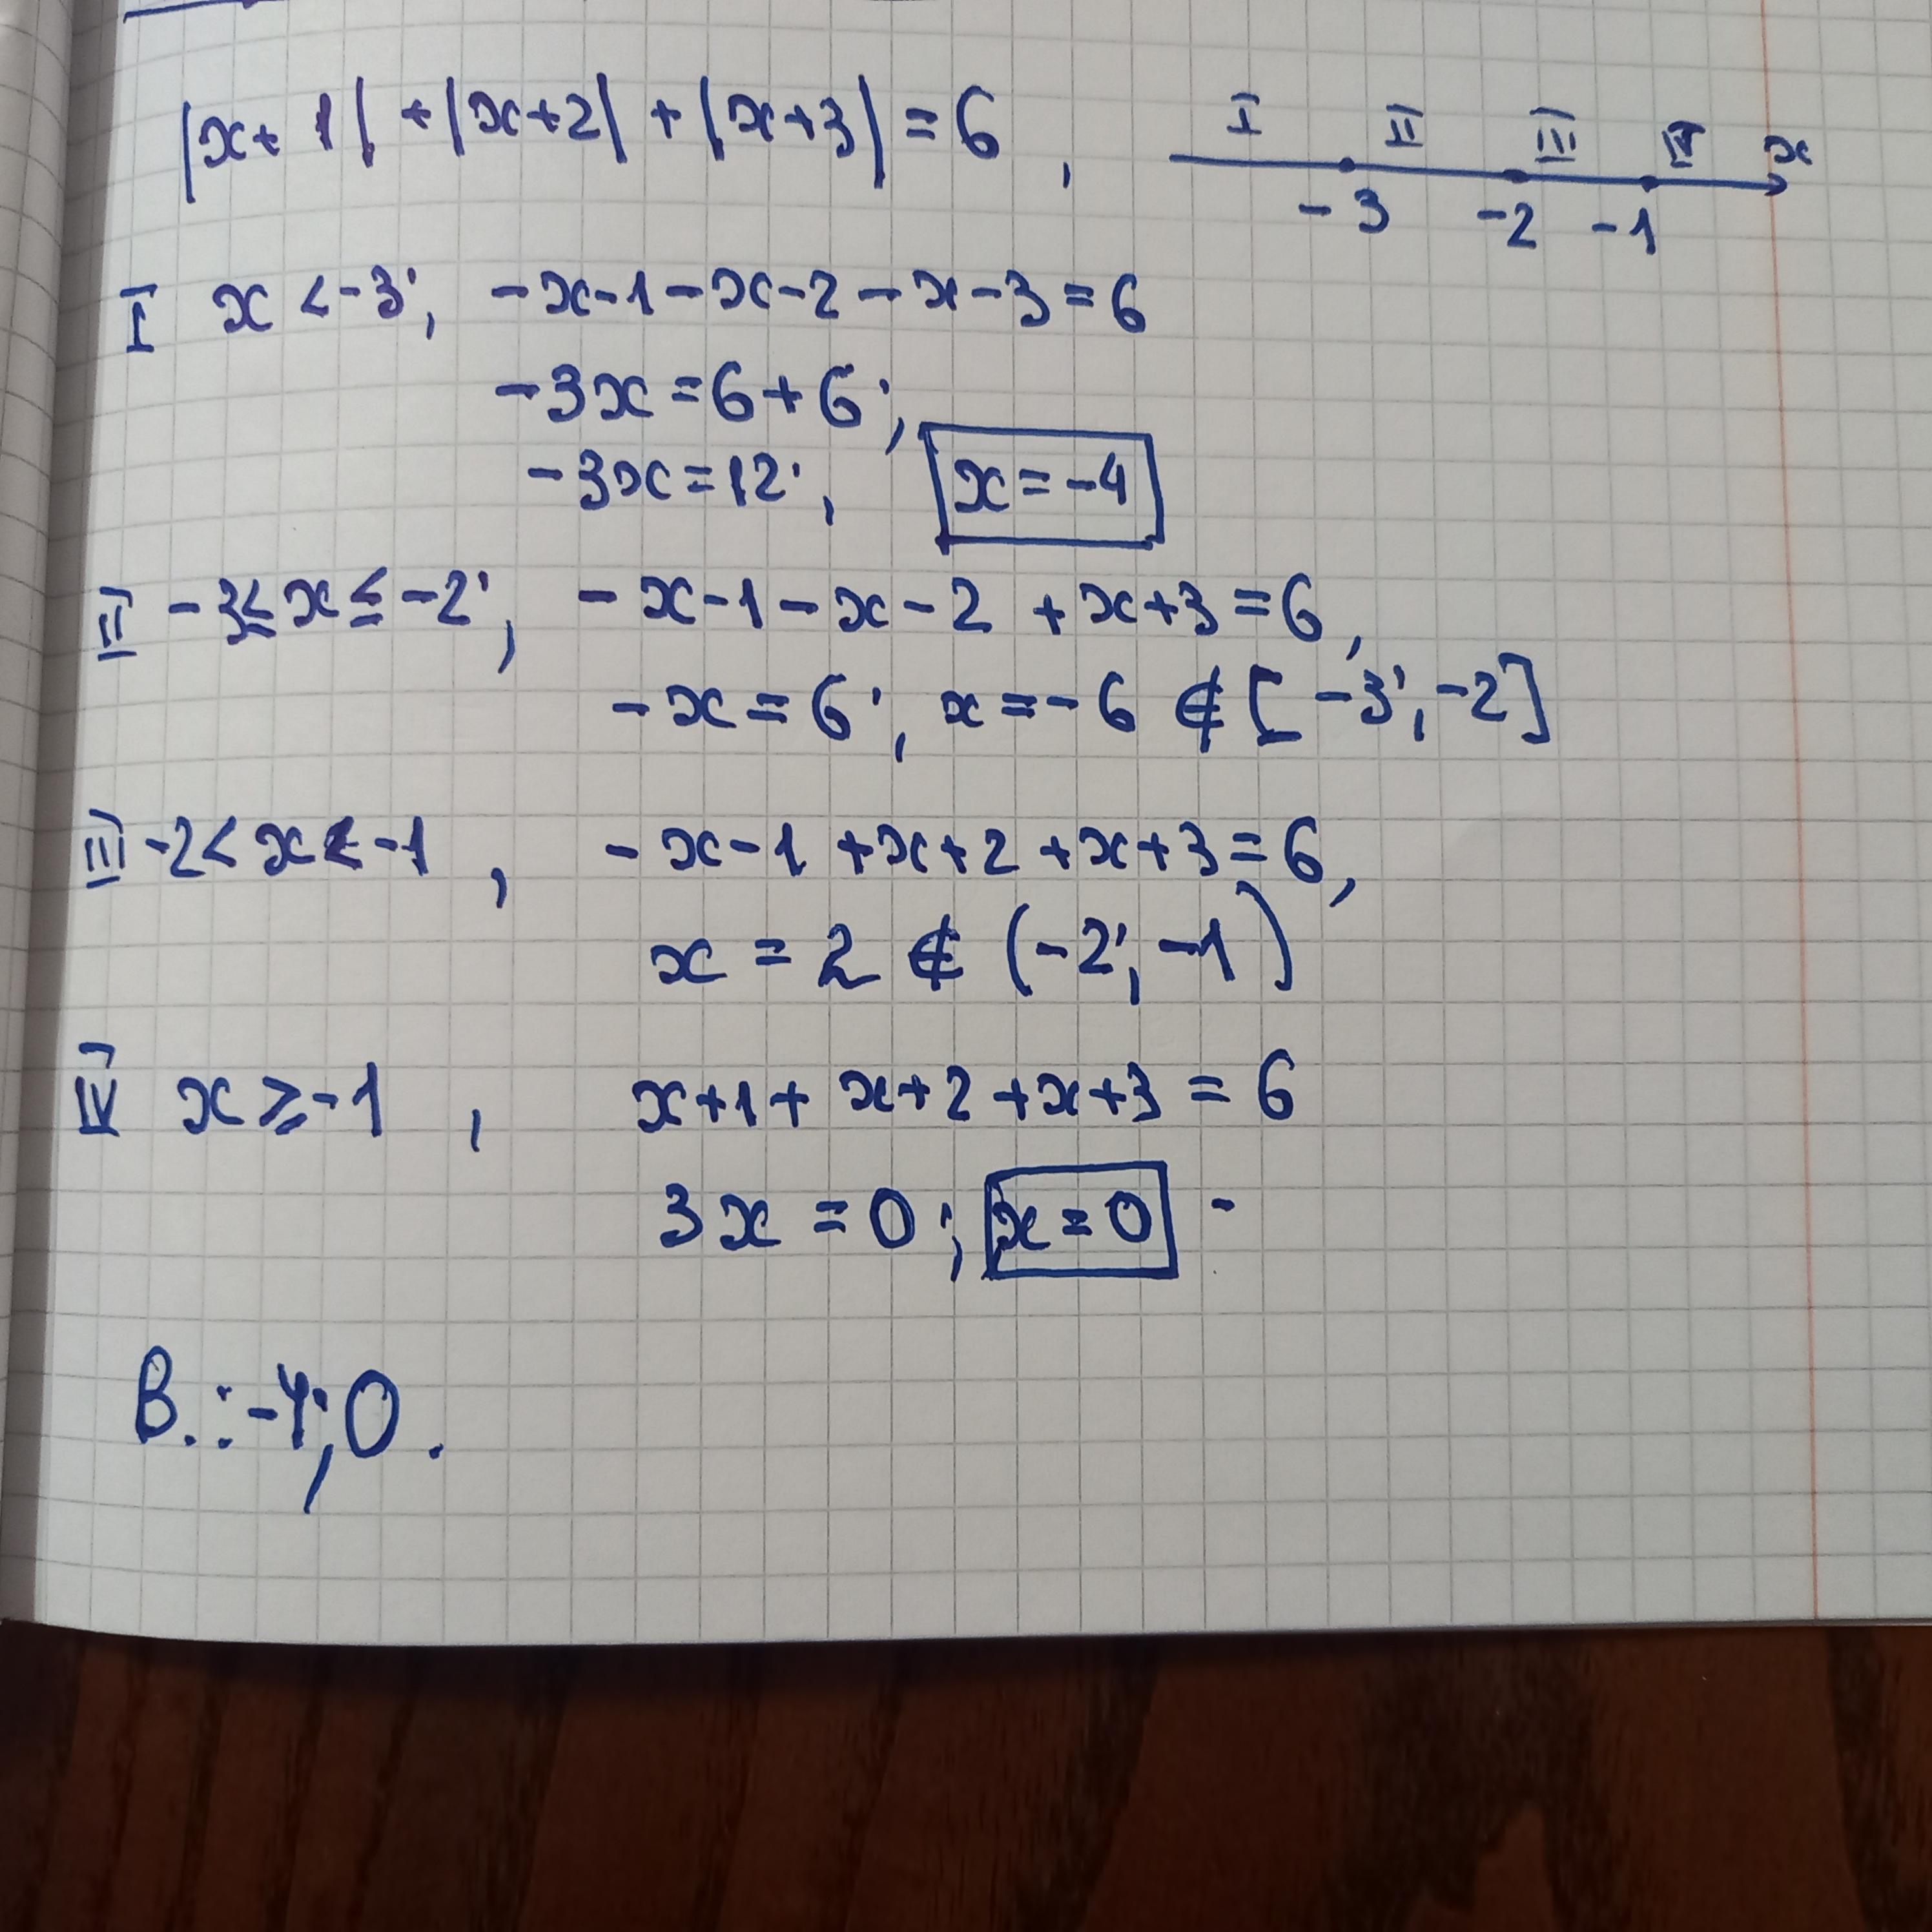 |x+1| + |x+2| + |x+3| = 6,
I II III IV x
-3 -2 -1
I x < -3; -x-1-x-2-x-3=6
-3x=6+6;
-3x=12; x=-4
II -3≤x≤-2; -x-1-x-2+x+3=6,
-x=6; x=-6 ∉ [-3;-2]
III -2<x<-1, -x-1+x+2+x+3=6,
x=2 ∉ (-2;-1)
IV x≥-1, x+1+x+2+x+3=6
3x=0; x=0 -
В.:-4;0.